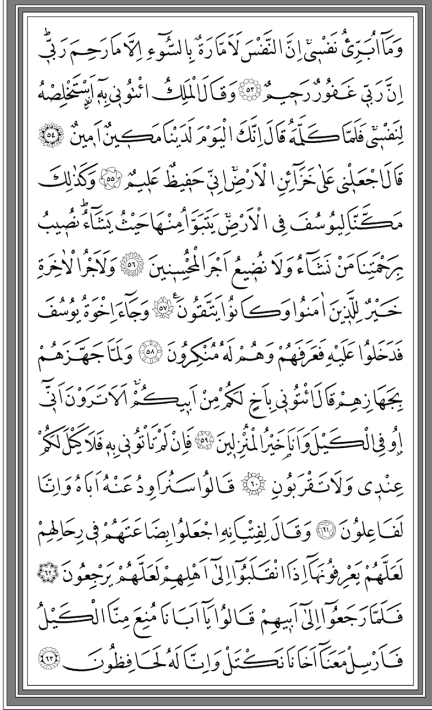 وَمَٓا اُبَرِّئُ نَفْسٖيۚ اِنَّ النَّفْسَ لَاَمَّارَةٌ بِالسُّٓوءِ اِلَّا مَا رَحِمَ رَبّٖيؕ
اِنَّ رَبّٖي غَفُورٌ رَحٖيمٌ ﴿٥٣﴾ وَقَالَ الْمَلِكُ ائْتُونٖي بِهٖٓ اَسْتَخْلِصْهُ
لِنَفْسٖيۚ فَلَمَّا كَلَّمَهُ قَالَ اِنَّكَ الْيَوْمَ لَدَيْنَا مَكٖينٌ اَمٖينٌ ﴿٥٤﴾
قَالَ اجْعَلْنٖي عَلٰى خَزَٓائِنِ الْاَرْضِۚ اِنّٖي حَفٖيظٌ عَلٖيمٌ ﴿٥٥﴾ وَكَذٰلِكَ
مَكَّنَّا لِيُوسُفَ فِي الْاَرْضِۚ يَتَبَوَّاُ مِنْهَا حَيْثُ يَشَٓاءُؕ نُصٖيبُ
بِرَحْمَتِنَا مَنْ نَشَٓاءُ وَلَا نُضٖيعُ اَجْرَ الْمُحْسِنٖينَ ﴿٥٦﴾ وَلَاَجْرُ الْاٰخِرَةِ
خَيْرٌ لِلَّذٖينَ اٰمَنُوا وَكَانُوا يَتَّقُونَ ﴿٥٧﴾ وَجَٓاءَ اِخْوَةُ يُوسُفَ
فَدَخَلُوا عَلَيْهِ فَعَرَفَهُمْ وَهُمْ لَهُ مُنْكِرُونَ ﴿٥٨﴾ وَلَمَّا جَهَّزَهُمْ
بِجَهَازِهِمْ قَالَ ائْتُونٖي بِاَخٍ لَكُمْ مِنْ اَبٖيكُمْۚ اَلَا تَرَوْنَ اَنّٖٓي
اُوفِي الْكَيْلَ وَاَنَا۬ خَيْرُ الْمُنْزِلٖينَ ﴿٥٩﴾ فَاِنْ لَمْ تَأْتُونٖي بِهٖ فَلَا كَيْلَ لَكُمْ
عِنْدٖي وَلَا تَقْرَبُونِ ﴿٦٠﴾ قَالُوا سَنُرَاوِدُ عَنْهُ اَبَاهُ وَاِنَّا
لَفَاعِلُونَ ﴿٦١﴾ وَقَالَ لِفِتْيَانِهِ اجْعَلُوا بِضَاعَتَهُمْ فٖي رِحَالِهِمْ
لَعَلَّهُمْ يَعْرِفُونَهَٓا اِذَا انْقَلَبُٓوا اِلٰٓى اَهْلِهِمْ لَعَلَّهُمْ يَرْجِعُونَ ﴿٦٢﴾
فَلَمَّا رَجَعُٓوا اِلٰٓى اَبٖيهِمْ قَالُوا يَٓا اَبَانَا مُنِعَ مِنَّا الْكَيْلُ
فَاَرْسِلْ مَعَنَٓا اَخَانَا نَكْتَلْ وَاِنَّا لَهُ لَحَافِظُونَ ﴿٦٣﴾